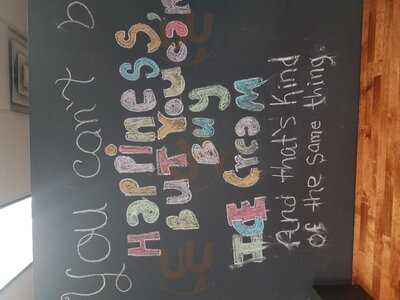 You can't b
Happiness,
But You can
Buy
ICE Cream
And that's Kind
of the same thing.